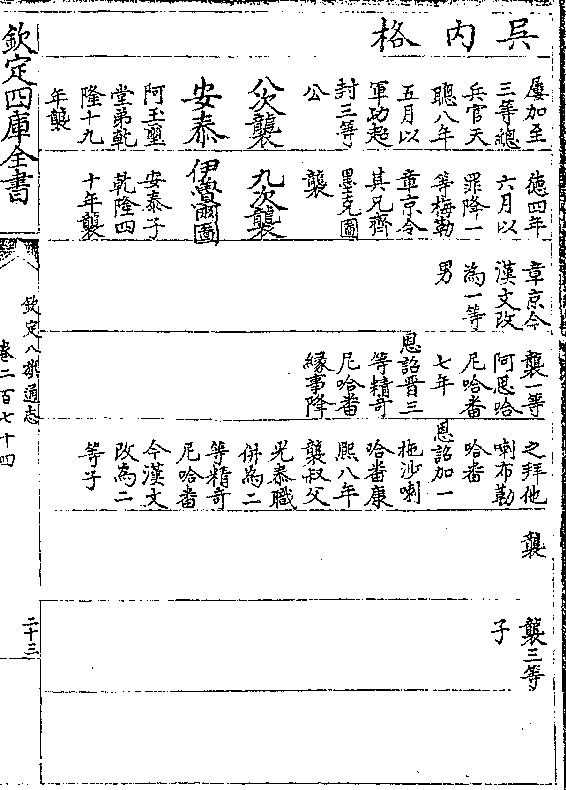 吳内格
屢加至
三等總
兵官天
聰八年
五月以
軍功超
封三等
公
八次襲
安泰
阿玉璽
堂弟乾
隆十九
年襲
徳四年
六月以
罪降一
等梅勒
章京令
其兄齊
墨克圖
襲
九次襲
伊魯爾圖
安泰子
乾隆四
十年襲
章京今
漢文改
為一等
男
襲一等
阿思哈
尼哈番
七年
恩詔晋三
等精竒
尼哈番
縁事降
之拜他
喇布勒
哈番
恩詔加一
拖沙喇
哈番康
熙八年
襲叔父
光泰職
併為二
等精竒
尼哈番
今漢文
改為二
等子
襲
襲三等
子
欽定四庫全書
欽定八旗通志
卷二百七十四
二十三